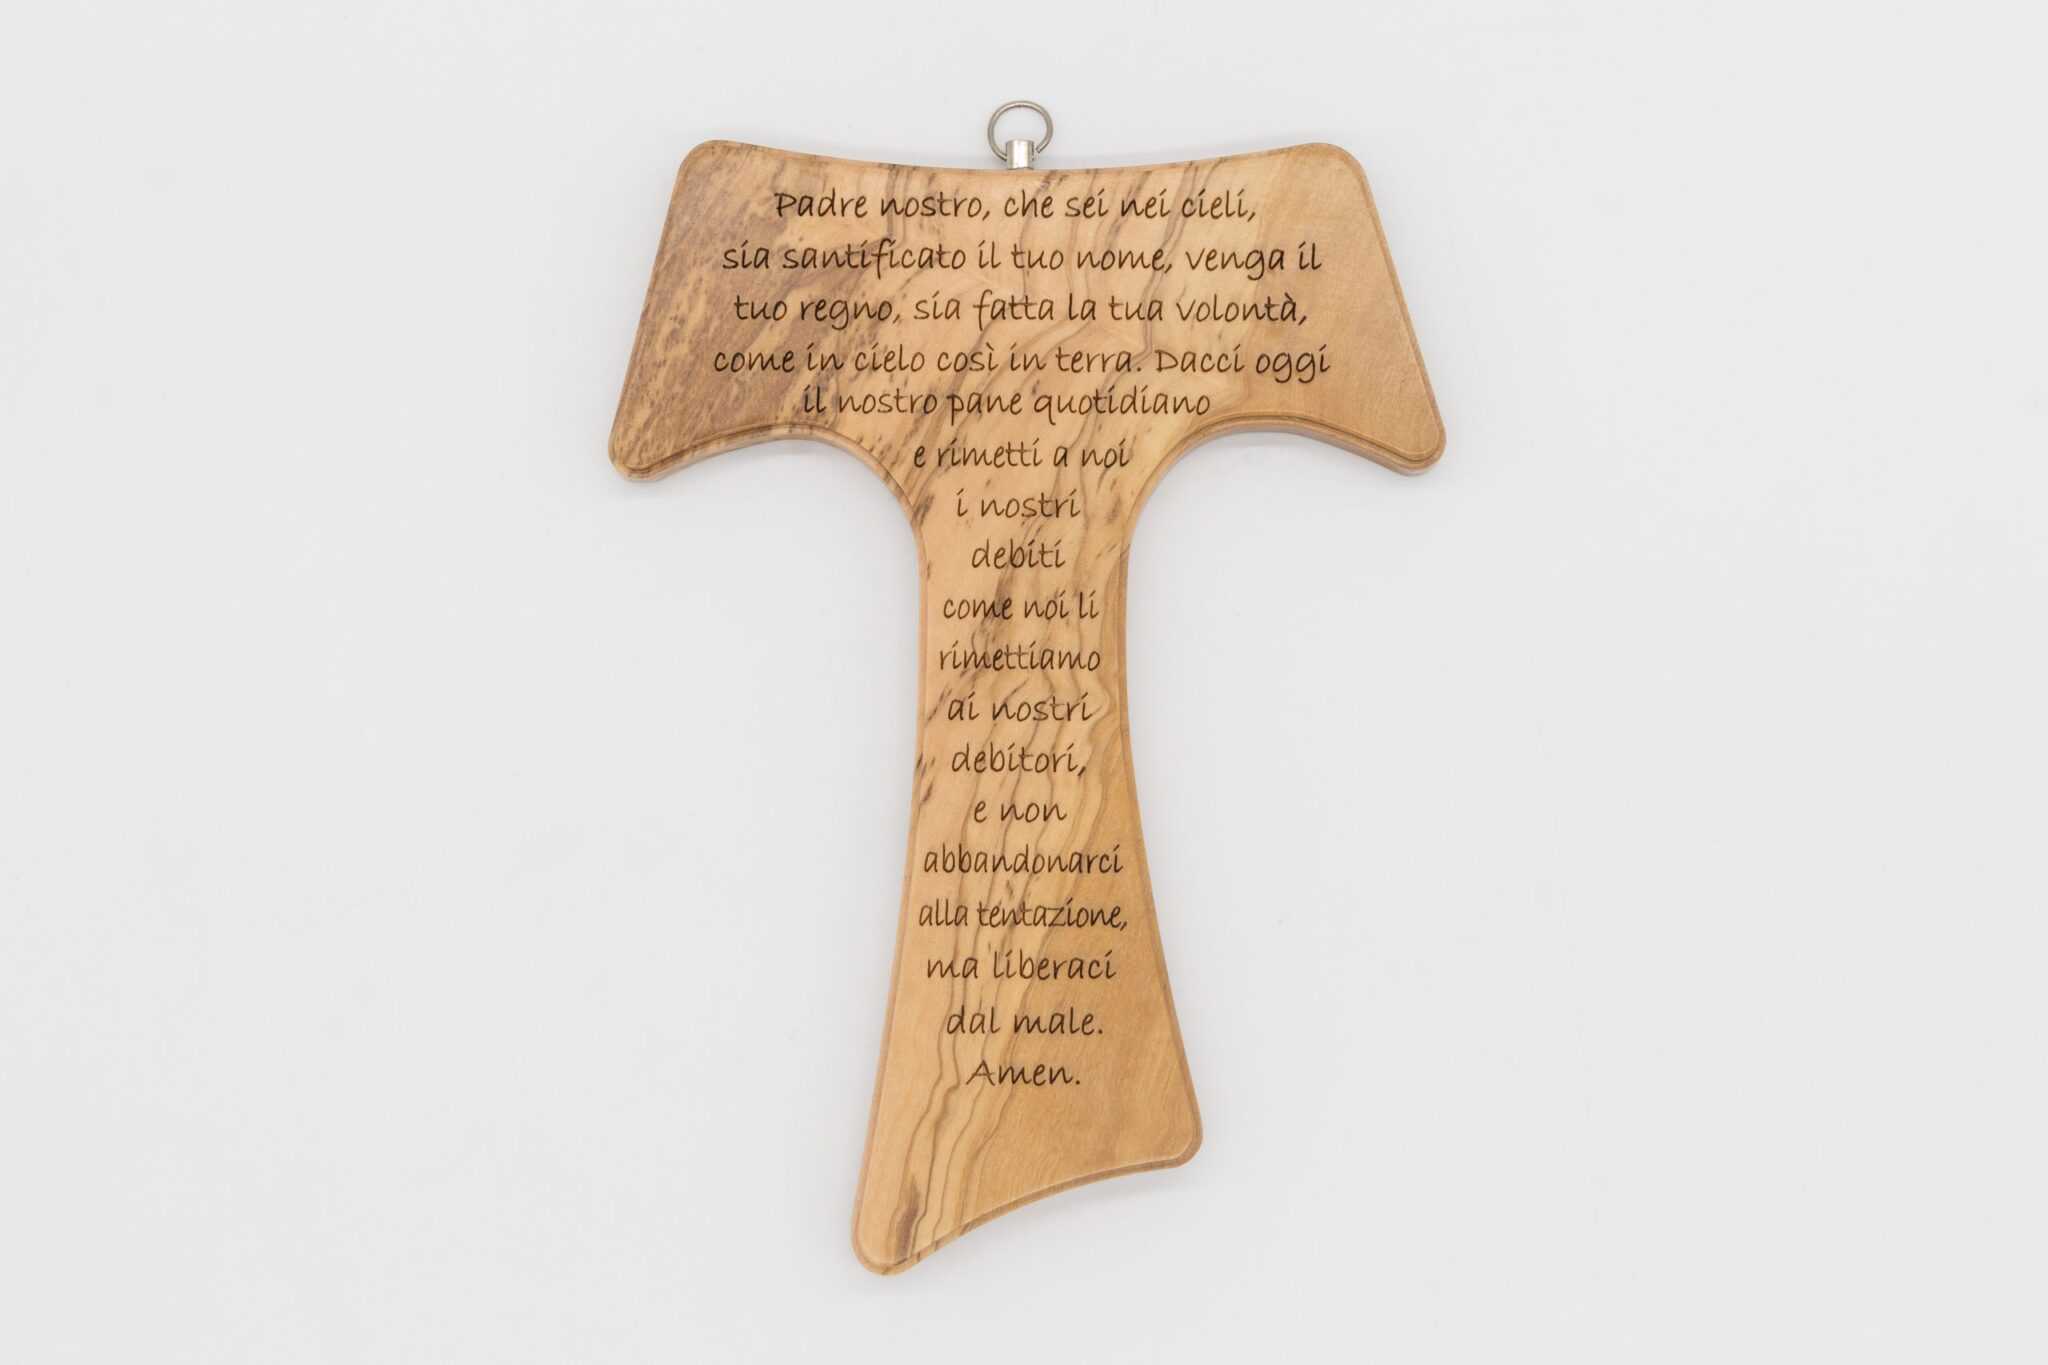 Padre nostro, che sei nei cieli,
sia santificato il tuo nome, venga il
tuo regno, sia fatta la tua volontà,
come in cielo così in terra. Dacci oggi
il nostro pane quotidiano
e rimetti a noi
i nostri
debiti
come noi li
rimettiamo
ai nostri
debitori,
e non
abbandonarci
alla tentazione,
ma liberaci
dal male.
Amen.